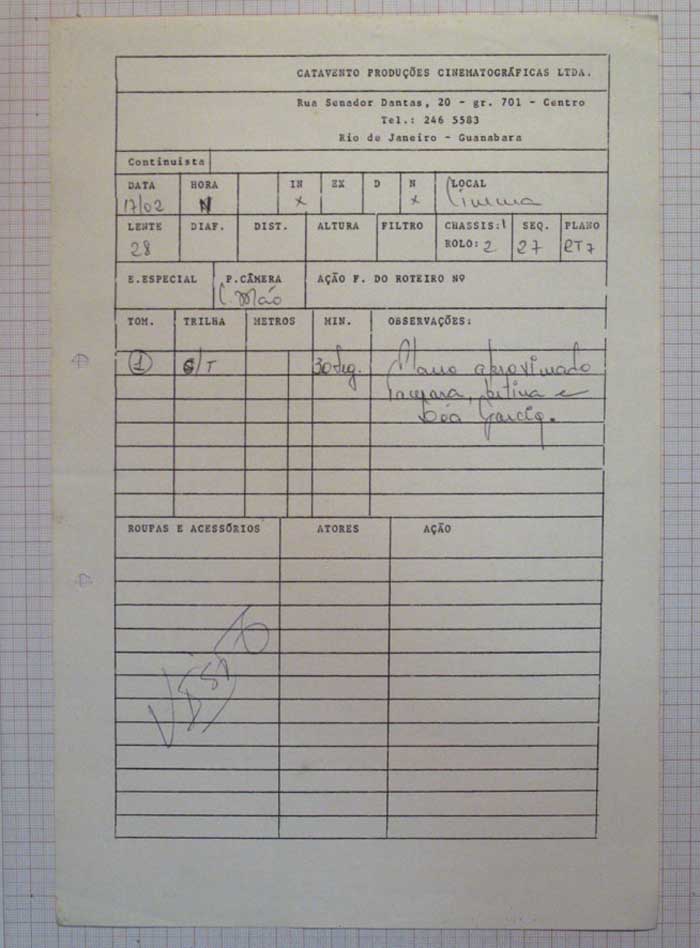 CATAVENTO PRODUÇÕES CINEMATOGRÁFICAS LTDA.
Rua Senador Dantas, 20 - gr. 701 - Centro
Tel.: 246 5583
Rio de Janeiro - Guanabara
Continuista
DATA HORA IN EX D N LOCAL
17/02 N x x Cinema
LENTE DIAF. DIST. ALTURA FILTRO CHASSIS: 1 SEQ. PLANO
28 ROLO: 2 27 RT7
E.ESPECIAL P.CÂMERA AÇÃO F. DO ROTEIRO Nº
C. Mão
TOM. TRILHA METROS MIN. OBSERVAÇÕES:
1 S/T 30 seg. Plano aproximado
e
Léa Garcia.
ROUPAS E ACESSÓRIOS ATORES AÇÃO
VISTO